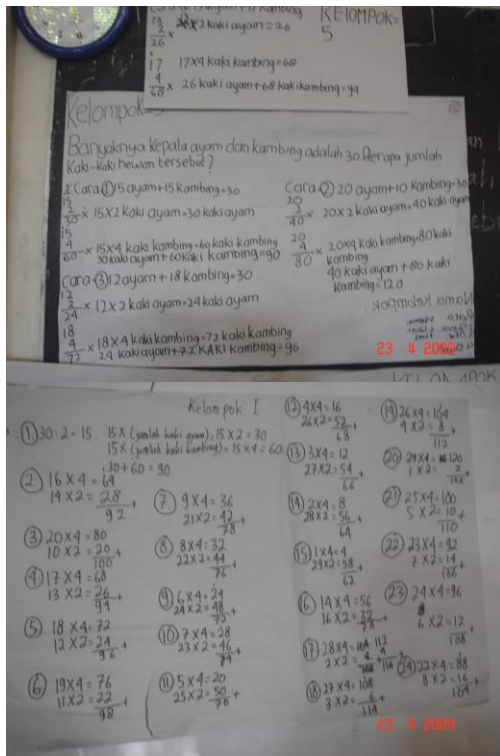 13 26x2 kaki ayam = 26
2 x
26
KELOMPOK=
5
17 17x4 kaki kambing = 68
4 x
68 26 kaki ayam + 68 kaki kambing = 94
Kelompok=5
Banyaknya kepala ayam dan kambing adalah 30. Berapa jumlah
kaki-kaki hewan tersebut?
Cara ① 15 ayam + 15 kambing = 30
15
2 x 15x2 kaki ayam = 30 kaki ayam
30
15
4 x 15x4 kaki kambing = 60 kaki kambing
60 30 kaki ayam + 60 kaki kambing = 90
Cara ③ 12 ayam + 18 kambing = 30
12
2 x 12x2 kaki ayam = 24 kaki ayam
24
18
4 x 18x4 kaki kambing = 72 kaki kambing
72 24 kaki ayam + 72 KAKI kambing = 96
Cara ② 20 ayam + 10 kambing = 30
20
2 x 20x2 kaki ayam = 40 kaki ayam
40
20
4 x 20x4 kaki kambing = 80 kaki
80 kambing
40 kaki ayam + 80 kaki
kambing = 120
Nama kelompok:
23 4 2009
KELOMPOK
Kelompok I
① 30 : 2 = 15. 15 x (jumlah kaki ayam) = 15 x 2 = 30
15 x (jumlah kaki kambing) = 15 x 4 = 60
30 + 60 = 90
② 16 x 4 = 64
14 x 2 = 28 +
92
③ 20 x 4 = 80
10 x 2 = 20 +
100
④ 17 x 4 = 68
13 x 2 = 26 +
94
⑤ 18 x 4 = 72
12 x 2 = 24 +
96
⑥ 19 x 4 = 76
11 x 2 = 22 +
98
⑦ 9 x 4 = 36
21 x 2 = 42 +
78
⑧ 8 x 4 = 32
22 x 2 = 44 +
76
⑨ 6 x 4 = 24
24 x 2 = 48 +
72
⑩ 7 x 4 = 28
23 x 2 = 46 +
74
⑪ 5 x 4 = 20
25 x 2 = 50 +
70
⑫ 4 x 4 = 16
26 x 2 = 52 +
68
⑬ 3 x 4 = 12
27 x 2 = 54 +
66
⑭ 2 x 4 = 8
28 x 2 = 56 +
64
⑮ 1 x 4 = 4
29 x 2 = 58 +
62
⑯ 14 x 4 = 56
16 x 2 = 32 +
⑰ 28 x 4 = 112
2 x 2 = 4 +
116
⑱ 27 x 4 = 108
3 x 2 = 6 +
114
⑲ 26 x 4 = 104
4 x 2 = 8 +
112
⑳ 29 x 4 = 120
1 x 2 = 2 +
㉑ 25 x 4 = 100
5 x 2 = 10 +
110
㉒ 23 x 4 = 92
7 x 2 = 14 +
106
㉓ 24 x 4 = 96
6 x 2 = 12 +
108
㉔ 22 x 4 = 88
8 x 2 = 16 +
104
23 4 2009